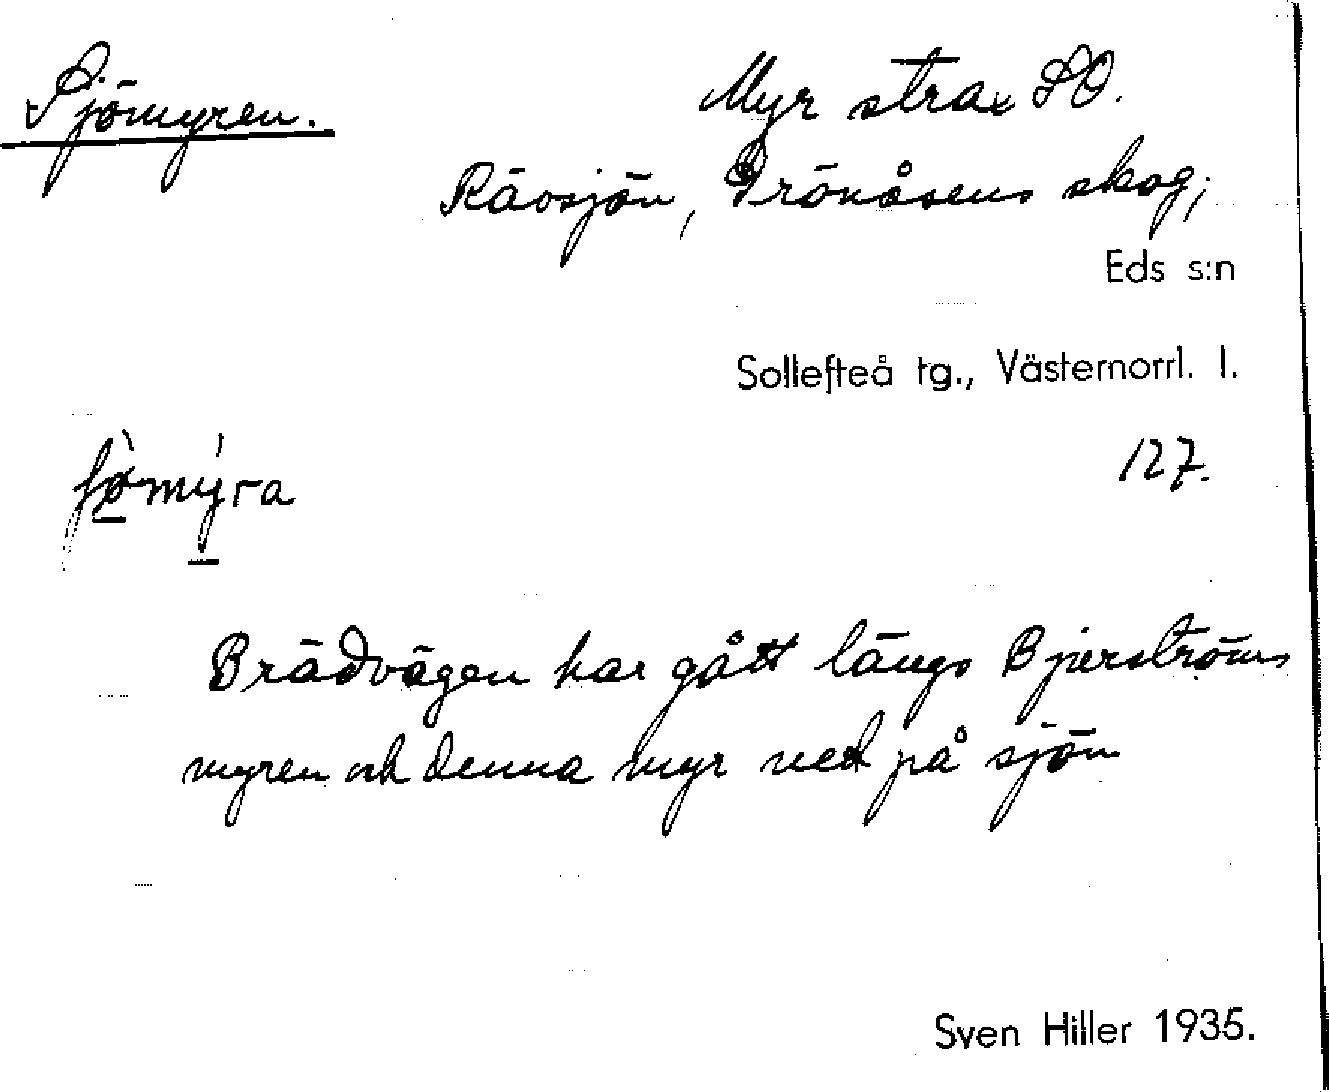 Sjömyren.
Myr strax SO.
Rävsjön, Grönåsens skog;
Eds s:n
Sollefteå tg., Västernorrl. l.
127.
Brädvägen har gått längs Bjerströms
myren och denna myr ned på sjön
Sven Hiller 1935.